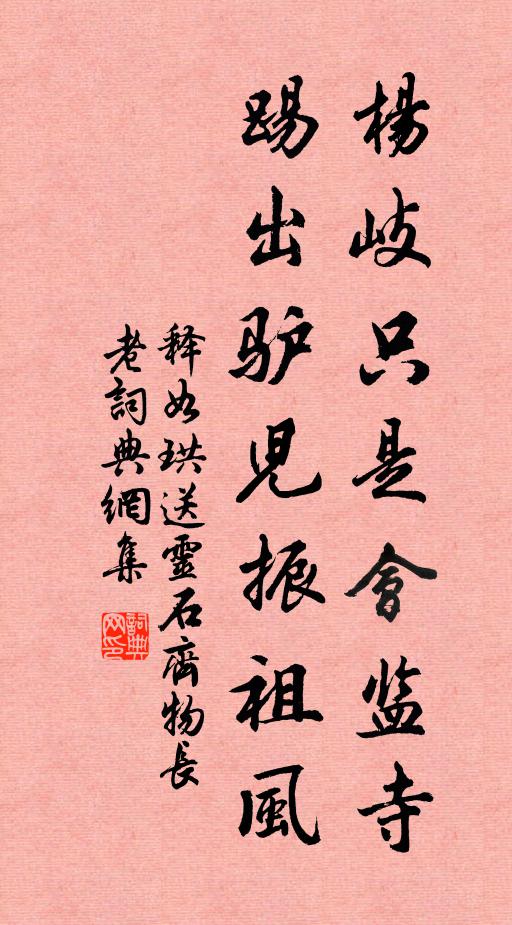 楊岐只是會监寺
踢出驴児振祖風
释如珙送靈石齊物長
老詞典網集
詞典
网印